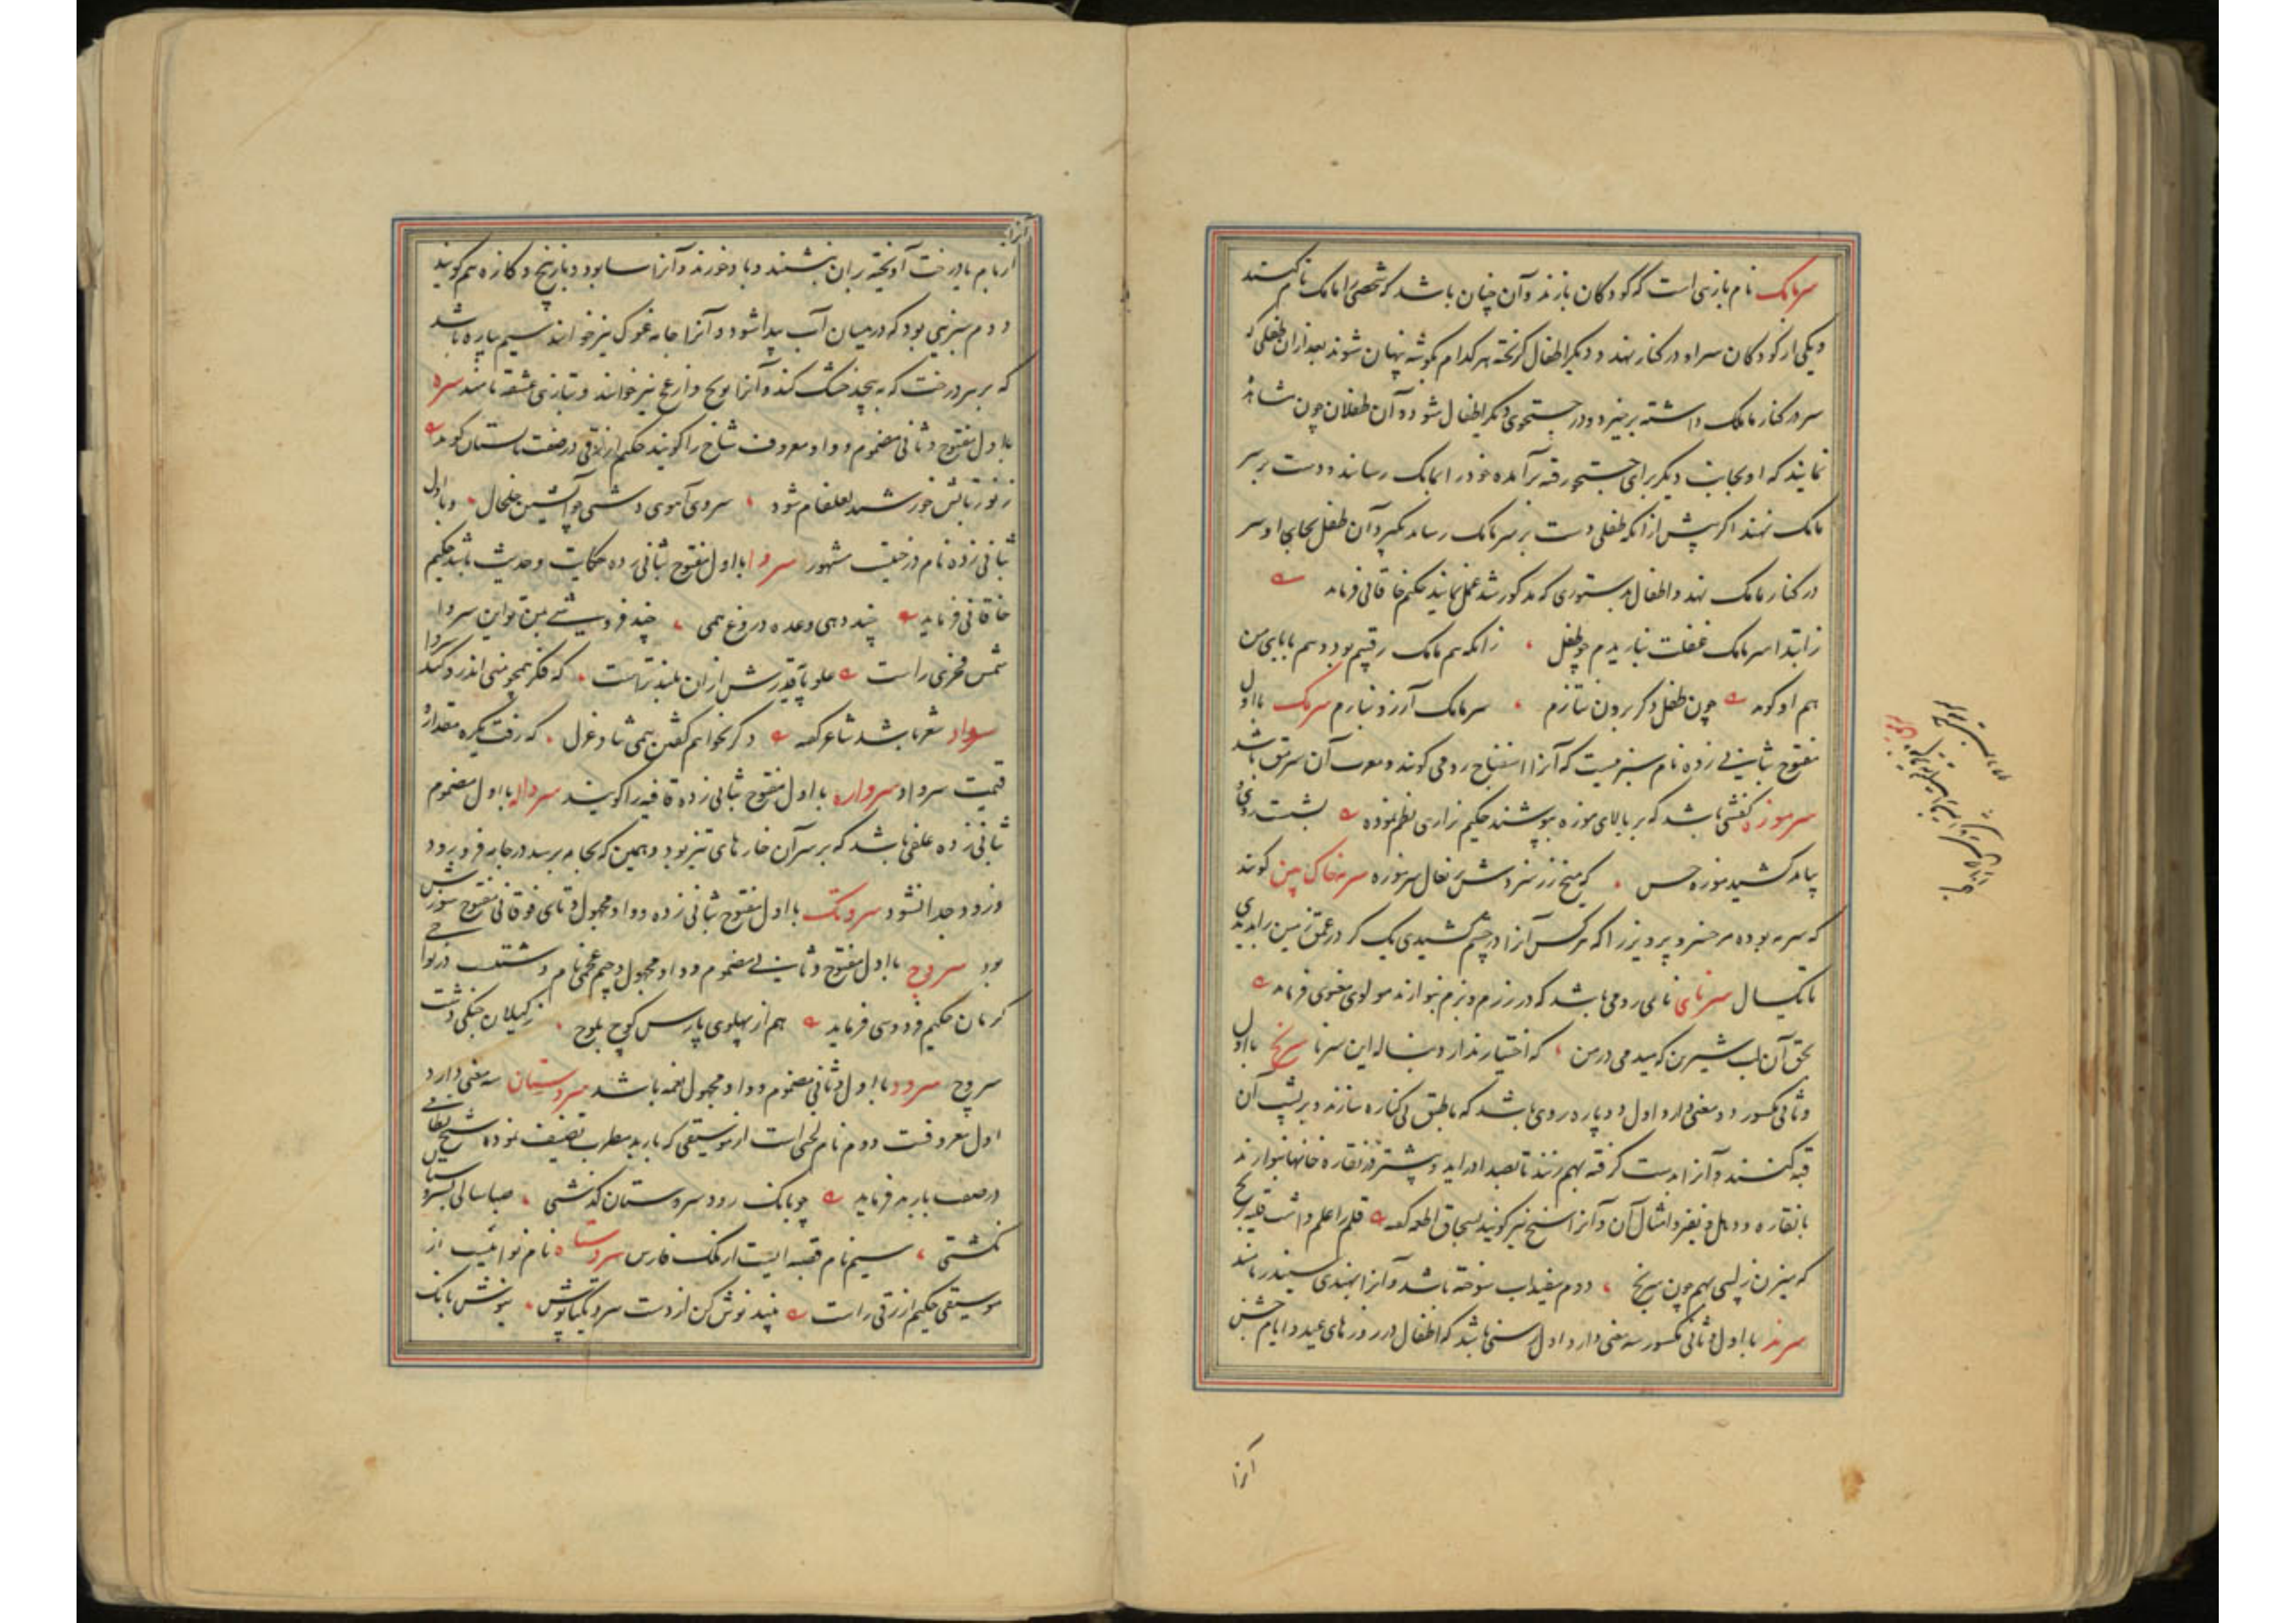 سرمامک نام بازیی است که کودکان بازند و آن چنان باشد که شخصی را مامک نام کنند
و یکی از کودکان سر او در کنار نهد و دیگر اطفال گریخته هر کدام بگوشه پنهان شوند بعد از ان طفلی که
سر در کنار مامک داشته برخیزد و در جستجوی دیگر اطفال شود و آن طفلان چون مشاهده
نمایند که او بجانب دیگر برای جستجو رفته برآمده خود را بمامک رسانند و دست بر سر
مامک نهند اگر پیش از انکه طفلی دست بر سر مامک رساند بگیرد آن طفل بجای او سر
در کنار مامک نهد و اطفال بدستوری که مذکور شد عمل نمایند حکیم خاقانی فرماید
ز ابتدا سرمامک غفلت نبازیدم چو طفل زانکه هم مامک رقیبم بود و هم بابای من
هم او گوید چون طفل دگر برون نتازم سرمامک آرزو نبازم سرمک با اول
مفتوح بثانی زده نام سبزییست که آنرا اسفناخ رومی گویند و معرب آن سرمق باشد
سرموزه کفشی باشد که بر بالای موزه بپوشند حکیم نزاری نظم نموده
بیامد کشید موزه که میخ زر نعال سرموزه سرمه خاک بین گویند
که سرمه بوده مر خسرو پرویز را که هر کس آنرا در چشم کشیدی یک گز در عمق زمین را بدیدی
تا یکسال سرنای نای رومی باشد که در رزم و بزم نوازند مولوی معنوی فرماید
بحق آن لب شیرین که میدمی در من که اختیار ندارد بناله این سرنا سرنج با اول
و ثانی مکسور دو معنی دارد اول دو پاره روی باشد که با طبق بی کناره سازند و بر پشت آن
قبه کنند و آنرا بدست گرفته بهم زنند تا بصدا در آید و بیشتر در نقاره خانها نوازند
با نقاره و دهل و نفیر و امثال آن و آنرا سنج نیز گویند بسحاق اطعمه گفته قلم را علم داشت
که میزن بهم چون سرنج دوم سفیداب سوخته باشد و آنرا بهندی سیندر نامند
سرند با اول و ثانی مکسور سه معنی دارد اول رسنی باشد که اطفال در روزهای عید و ایام جشن
آنرا
آنرا
از بام یا درخت آویخته بران بنشینند و باد خورند و آنرا سابود و بازپیچ و کازه هم گویند
دوم سبزیی بود که در میان آب پیدا شود و آنرا جامه غوک نیز خوانند سیم پاره باشد
که بر هر درخت که بپیچد خشک کند و آنرا نویج و ازغج نیز خوانند و بتازی عشقه نامند سرو
با اول مفتوح و ثانی مضموم و واو معروف شاخ را گویند حکیم ازرقی در صفت تابستان گوید
ز نور تابش خورشید لعلفام شود سروی آهوی دشتی چو آتشین خلخال و با اول
بثانی زده نام درختیست مشهور سروا با اول مفتوح بثانی زده حکایت و حدیث باشد حکیم
خاقانی فرماید چند دهی وعده دروغ همی چند فروشی بمن تو این سروا
شمس فخری راست علو پایه قدرش ازان بلندتراست که فکر همچو منی اندر و کند سروا
سرواد شعر باشد شاعر گفته دگر نخواهم گفتن همی ثنا و غزل که رفت یکره مقدار و
قیمت سرواد سرواره با اول مفتوح بثانی زده قافیه را گویند سرواله با اول مضموم
بثانی زده علفی باشد که بر سر آن خارهای تیز بود و همین که بجامه برسد در جامه فرو رود
و زود جدا نشود سروتک با اول مفتوح بثانی زده و واو مجهول و تای فوقانی مفتوح شورش
بود سروچ با اول مفتوح و ثانی مضموم و واو مجهول و جیم عجمی نام دشتیست در نواحی
کرمان حکیم فردوسی فرماید هم از پهلوی پارس کوچ بلوچ ز گیلان جنگی و دشت
سروچ سرود با اول و ثانی مضموم و واو مجهول نغمه باشد سروستان سه معنی دارد
اول معروفست دوم نام لحنی است از موسیقی که باربد مطرب تصنیف نموده شیخ نظامی
در صفت باربد فرماید چو بانگ رود سروستان گذشتی صبا سالی بسروستان
نگشتی سیم نام قصبه ایست از ملک فارس سروستاه نام نوائیست از
موسیقی حکیم ازرقی راست نبید نوش کن از دست سرو بنیوش بانگ